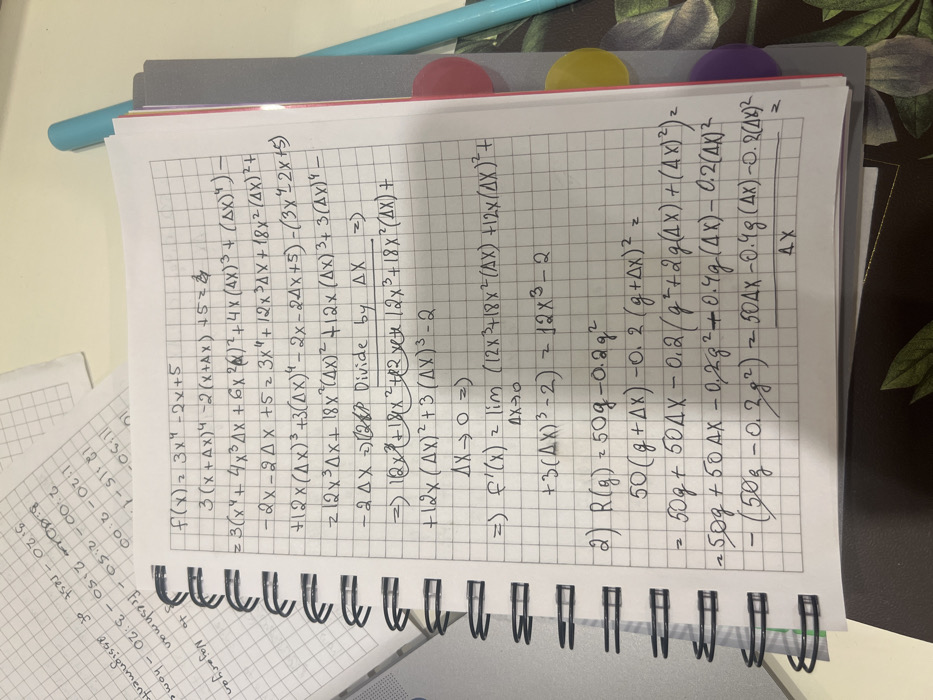 f(x) = 3x⁴ - 2x + 5
3(x + Δx)⁴ - 2(x + Δx) + 5 =
= 3(x⁴ + 4x³Δx + 6x²()² + 4x(Δx)³ + (Δx)⁴) -
- 2x - 2Δx + 5 = 3x⁴ + 12x³Δx + 18x²(Δx)² +
+ 12x(Δx)³ + 3(Δx)⁴ - 2x - 2Δx + 5) - (3x⁴ - 2x + 5)
= 12x³Δx + 18x²(Δx)² + 12x(Δx)³ + 3(Δx)⁴ -
- 2Δx => Divide by Δx =>
=> 12x³ + 18x²(Δx) +
+ 12x(Δx)² + 3(Δx)³ - 2
Δx → 0 =>
=> f'(x) = lim (12x³ + 18x²(Δx) + 12x(Δx)² +
Δx→0
+ 3(Δx)³ - 2) = 12x³ - 2
2) R(g) = 50g - 0.2g²
50(g + Δx) - 0.2(g + Δx)² =
= 50g + 50Δx - 0.2(g² + 2g(Δx) + (Δx)²) =
= 50g + 50Δx - 0.2g² + 0.4g(Δx) - 0.2(Δx)²
- (50g - 0.2g²) = 50Δx - 0.4g(Δx) - 0.2(Δx)²
Δx =
11:30 -
12:15 - 1
1:20 - 2:00
2:00 - 2:50 -
2:50 - 3:20 - home
3:20 - rest of assignments
Freshman
to
Nagaryan